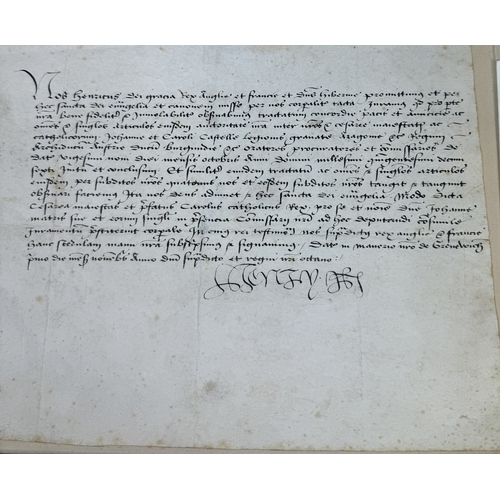 Nos Henricus dei gracia Rex Anglie et francie et dns hibernie promittimus et per
hec sancta dei evangelia et canonem misse per nos corporalit tacta Juramus qd pro pte
nra bene fidelit & Inviolabilit observabimus tractatum concordie pacis et amicicie ac
omnes & singlos articlos eiusdem autoritate nra inter nros & cesaree maiestatis ac
catholicorum Johanne et Caroli Castelle Legionis granate Aragonu &c Regum
Archiducu Austrie Ducu burgundie &c oratores procuratores et comissarios de
dat vigesimi noni diei mensis octobris Anni Domini millesimi quingentesimi decimi
sexti Initu et conclusum Et similit eundem tractatu ac omnes & singlos articlos
eiusdem per subditos nros quatenus nos et eosdem subditos nros tangit & tangunt
observari faciemus Ita nos deus adiuvet & hec sancta dei evangelia Modo dicta
Cesarea maiestas et pfatus Carolus catholicus Rex pro se et noie dne Johanne
matris sue et eorum singli in presencia Comissarii nri ad hec deputandi consimile
Juramentu prestiterint corporale In cuius rei testimon nos supdictus rex anglie & francie
hanc scedulam manu nra subscripsimus & signavimus Dat in manerio nro de Grenewich
primo die mens novembr Anno dni supdicto et regni nri octavo
Henry